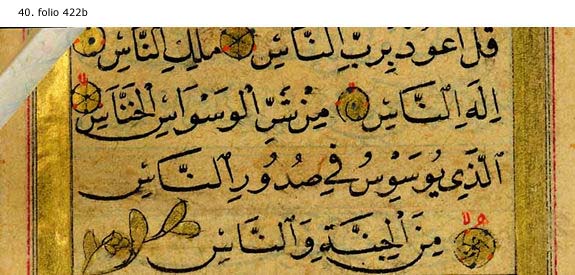 40. folio 422b
قُلْ أَعُوذُ بِرَبِّ النَّاسِ مَلِكِ النَّاسِ
إِلَهِ النَّاسِ مِنْ شَرِّ الْوَسْوَاسِ الْخَنَّاسِ
الَّذِي يُوَسْوِسُ فِي صُدُورِ النَّاسِ
مِنَ الْجِنَّةِ وَالنَّاسِ